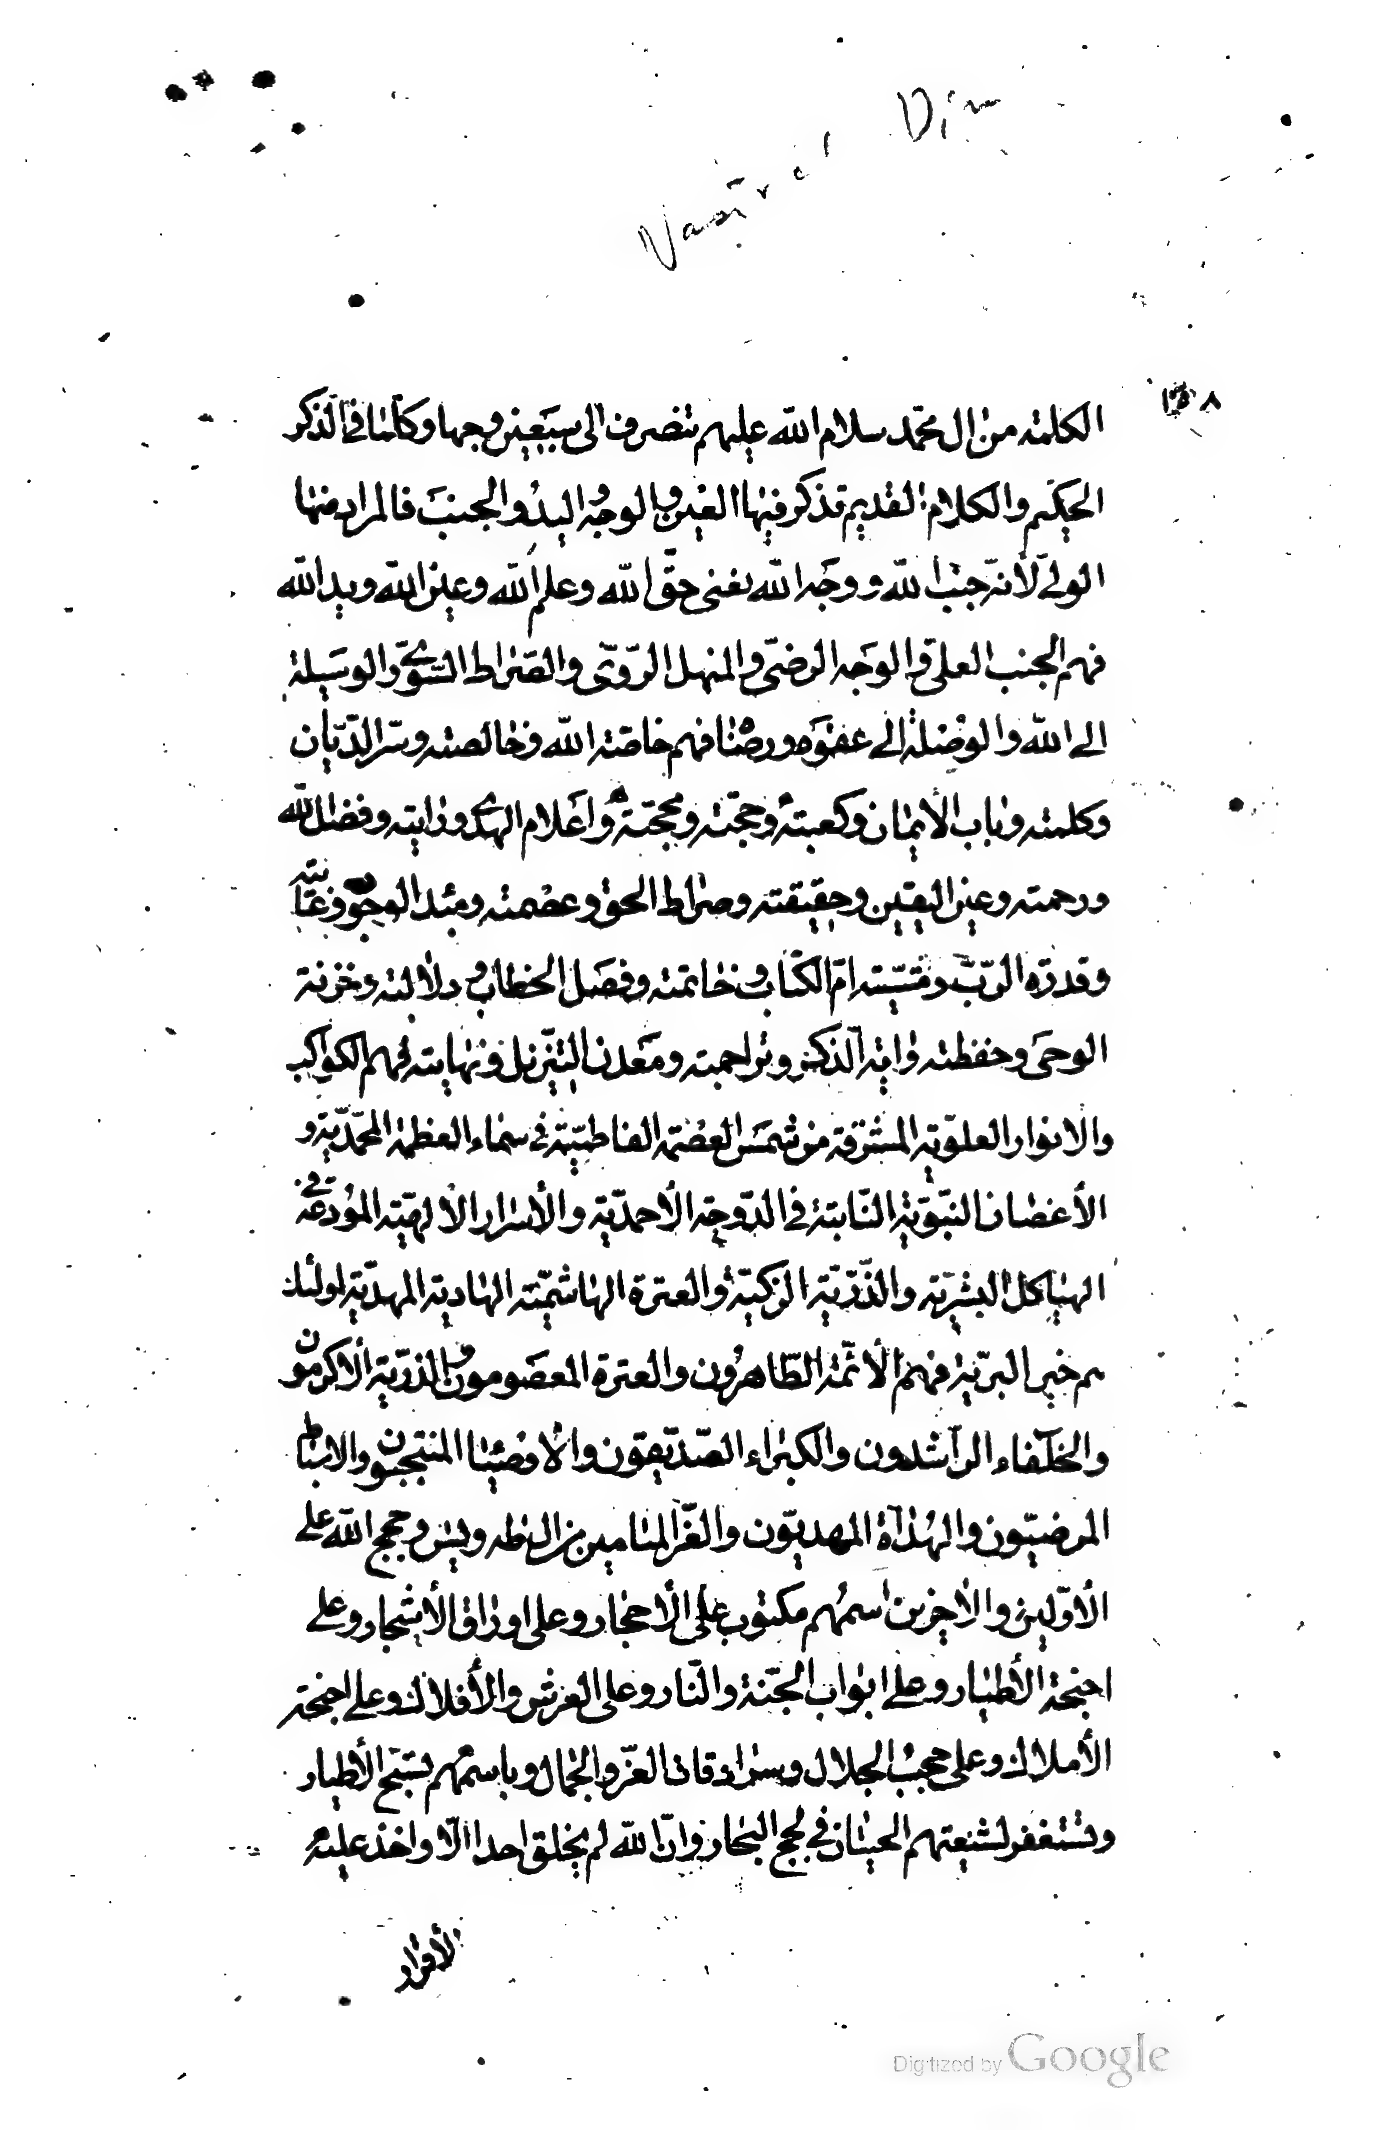 Nasir al Din
الكلمة من ال محمّد سلام الله عليهم تنصرف الى سبعين وجها وكلّما في الذكر
الحكيم والكلام القديم تذكر فيها العين والوجه واليد والجنب فالمراد منها
الولي لأنّه جنب الله ووجه الله يعنى حقّ الله وعلم الله وعين الله ويد الله
فهم الجنب العلي والوجه الرضي والمنهل الرّوي والصراط السّوي والوسيلة
الى الله والوصلة الى عفوه ورضا فهم خاصّة الله وخالصته وسرّ الديّان
وكلمته وباب الأيمان وكعبته وحجّته ومحجّته واعلام الهدى ورايته وفضل الله
ورحمته وعين اليقين وحقيقته وصراط الحق وعصمته ومبدا الوجود وغايته
وقدرة الربّ ومشيّته امّ الكتاب وخاتمته وفصل الخطاب ودلالته وخزنة
الوحي وحفظته واية الذكر وتراجمته ومعدن التنزيل ونهايته فهم الكواكب
والانوار العلويّة المشرقة من شمس العصمة الفاطميّة في سماء العظمة المحمّديّة و
الأغصان النبّويّة النّابتة في الدّوحة الأحمديّة والأسرار الألهيّة المودعة في
الهياكل البشريّة والذّرّيّة الزكيّة والعترة الهاشميّة الهادية المهديّة اولئك
هم خير البريّة فهم الأئمّة الطّاهرون والعترة المعصومون والذرّية الاكرمون
والخلفاء الراشدون والكبراء الصّديقون والأوصيا المنتجبون والاسباط
المرضيّون والهداة المهديّون والغرّ الميامين من ال طه ويس وحجج الله على
الأوّلين والاخرين اسمهم مكتوب على الأحجار وعلى اوراق الأشجار وعلى
اجنحة الأطيار وعلى ابواب الجنّة والنّار وعلى العرش والأفلاك وعلى اجنحة
الأملاك وعلى حجب الجلال وسرادقات العزّ والجمال وباسمهم تسبّح الأطيار
وتستغفر لشيعتهم الحيتان في لجج البحار وانّ الله لم يخلق احدا الّا واخذ عليه
الأقرار
Digitized by Google